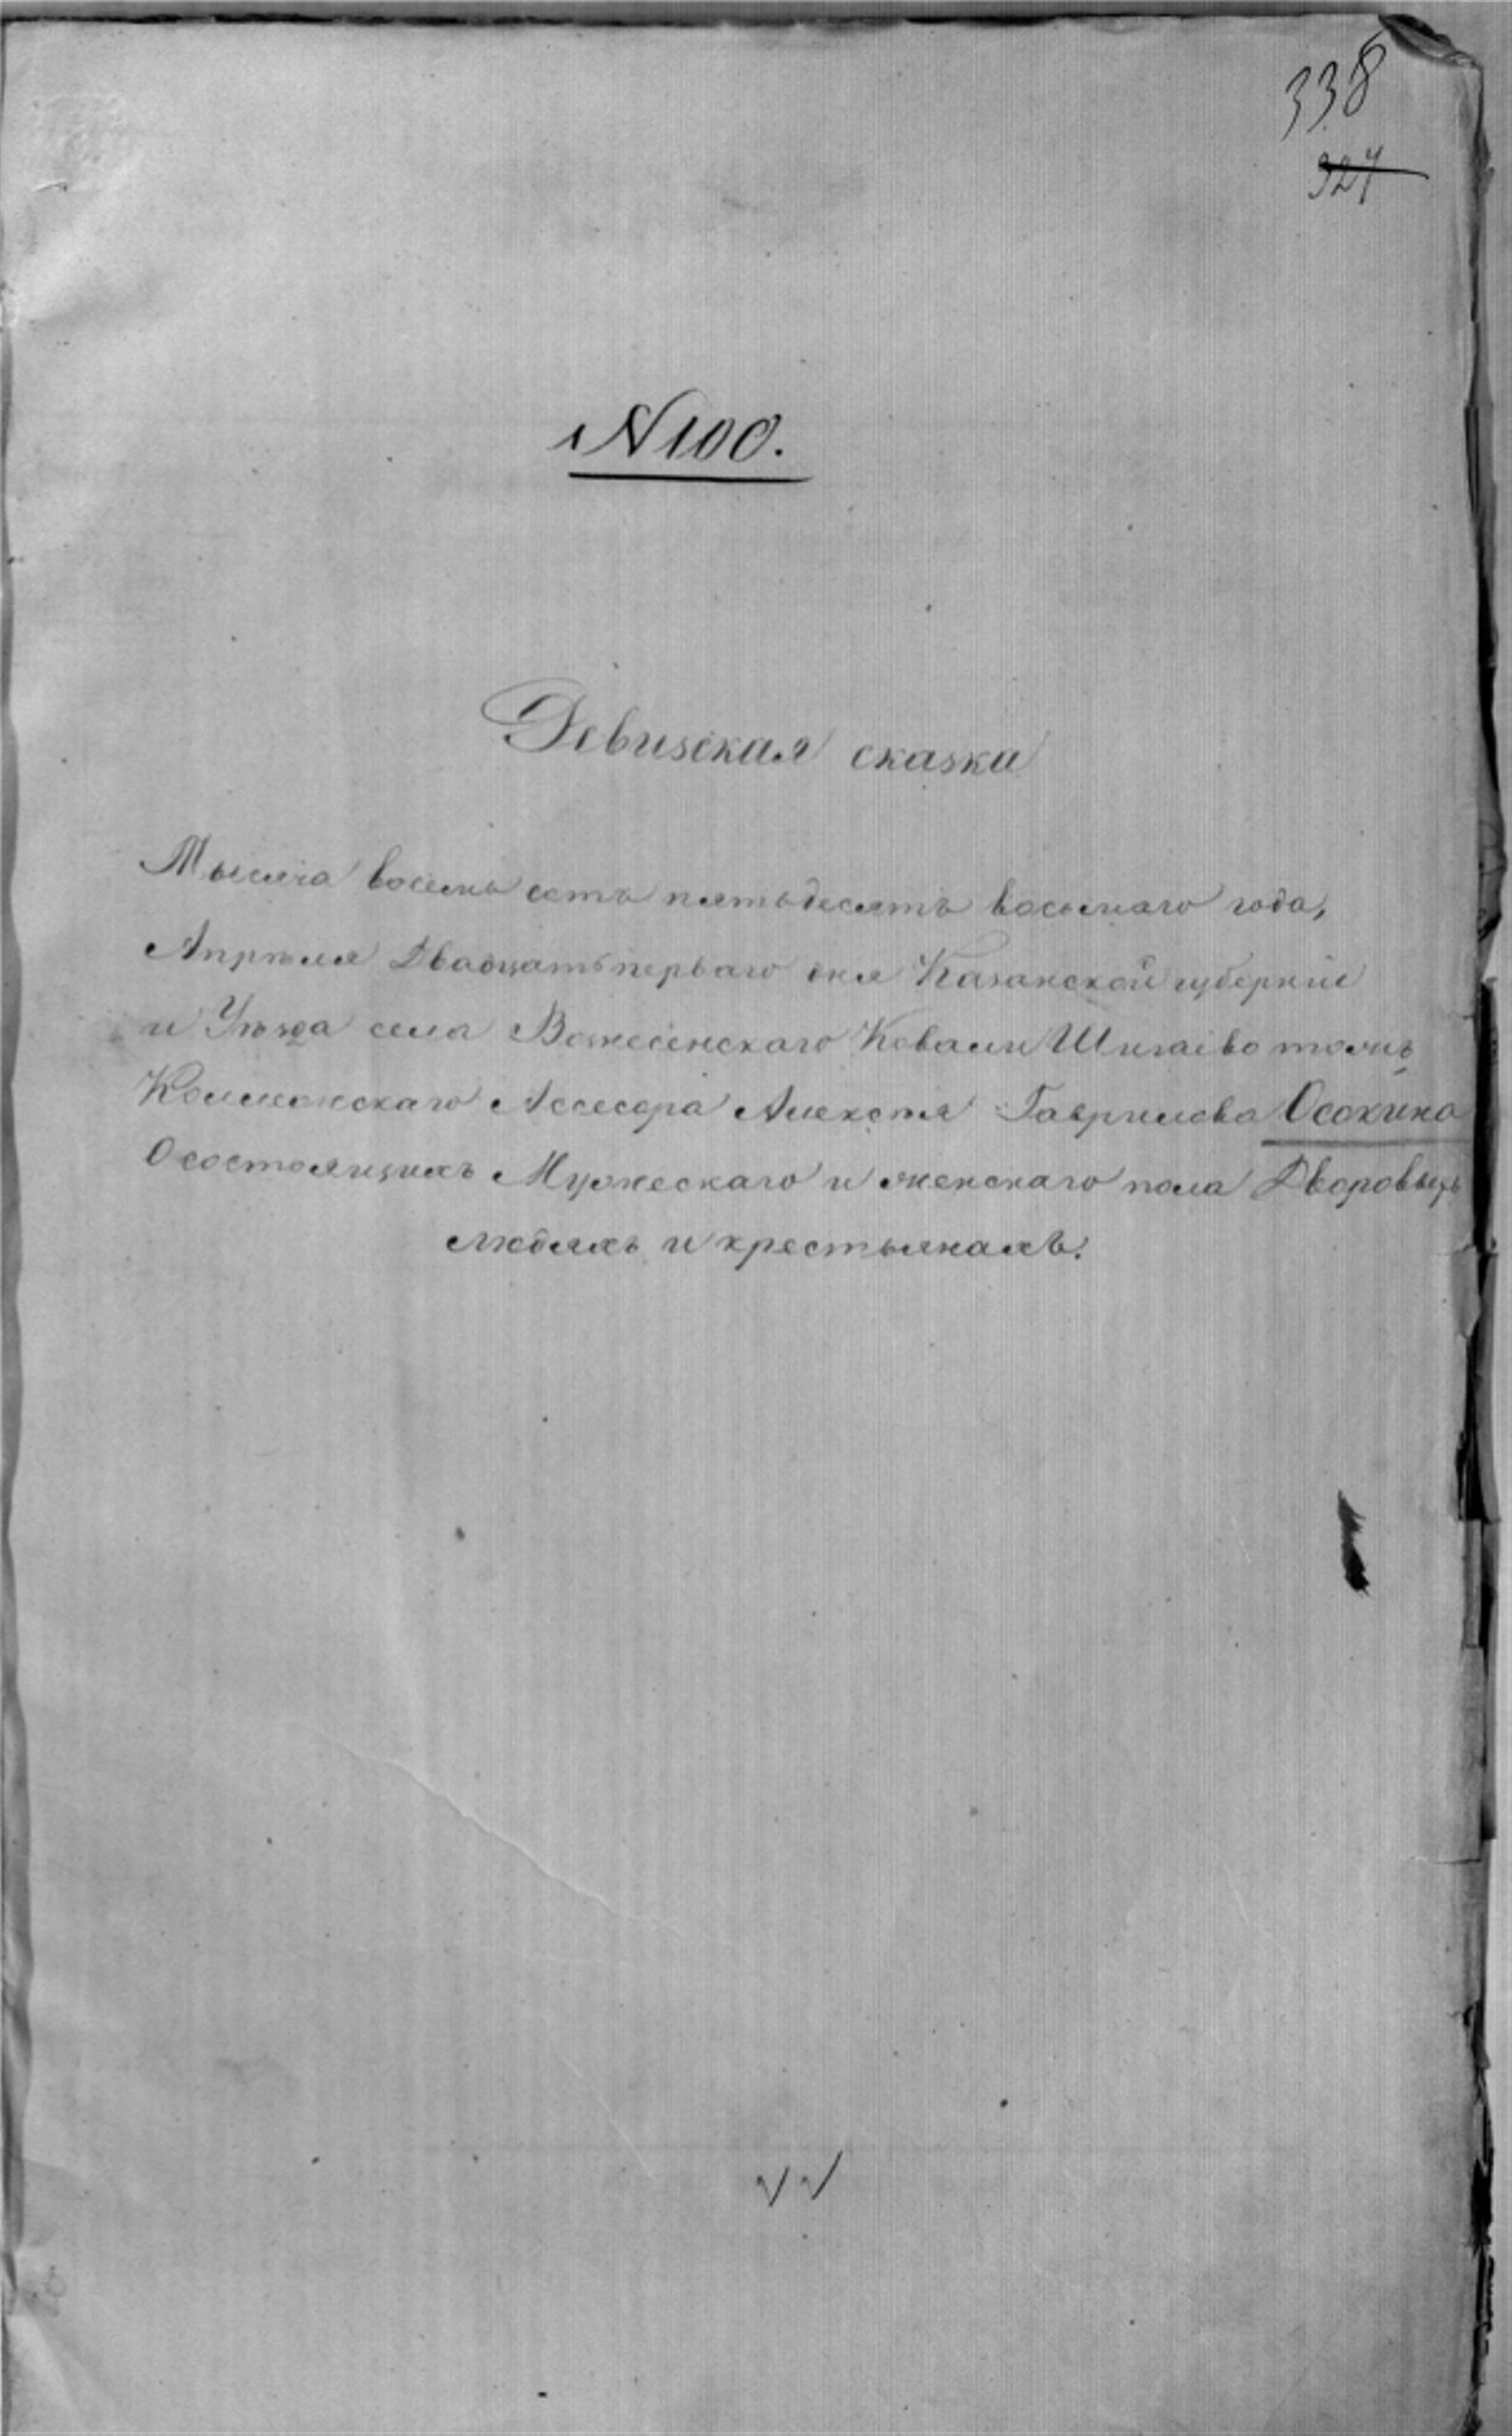 338
327
N 100.
Ревизская сказка
Тысяча восемь сотъ пятьдесятъ восьмаго года,
Апрѣля Двадцать перваго дня Казанской губерніи
и Уѣзда села Вознесенскаго Ковали Шигаево тожъ
Коллежскаго Ассесора Алексѣя Гаврилова Осокина
О состоящихъ Мужескаго и женскаго пола Дворовыхъ
людяхъ и крестьянахъ.